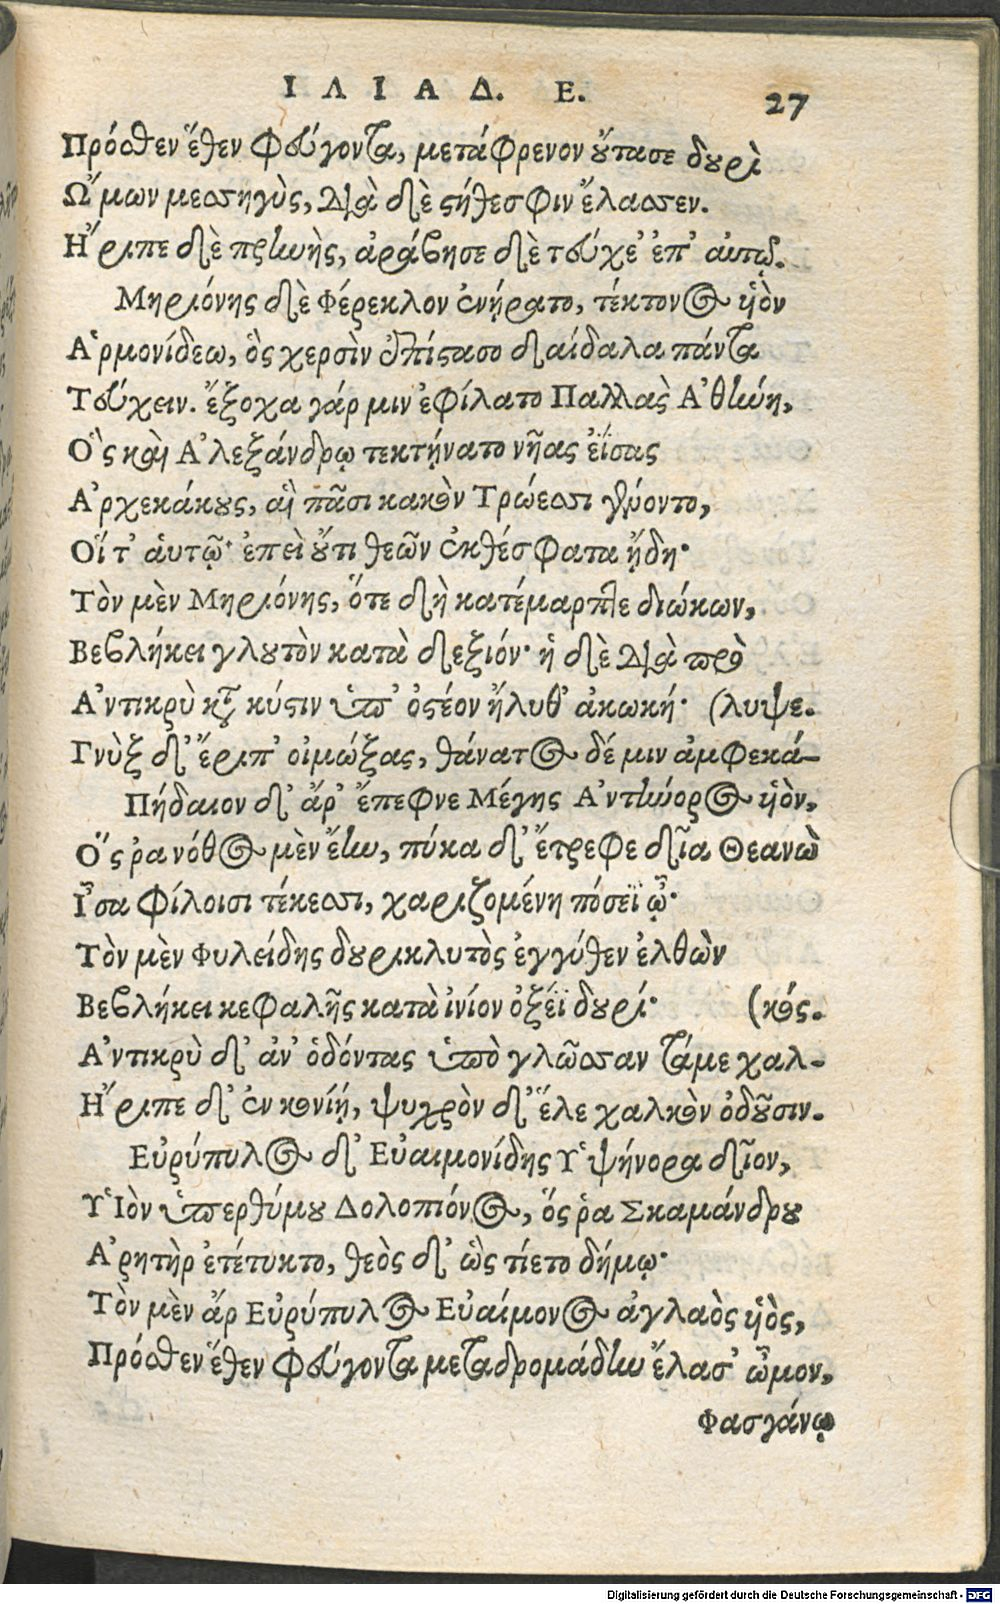 ΙΛΙΑΔ. Ε. 27
Πρόσθεν ἕθεν φεύγοντα, μετάφρενον οὔτασε δουρὶ
Ὤμων μεσσηγὺς, διὰ δὲ στήθεσφιν ἔλασσεν.
Ἤριπε δὲ πρηνὴς, ἀράβησε δὲ τεύχε' ἐπ' αὐτῷ.
Μηριόνης δὲ Φέρεκλον ἐνήρατο, τέκτονος υἱὸν
Ἁρμονίδεω, ὃς χερσὶν ἐπίστασο δαίδαλα πάντα
Τεύχειν. ἔξοχα γάρ μιν ἐφίλατο Παλλὰς Ἀθήνη,
Ὃς καὶ Ἀλεξάνδρῳ τεκτήνατο νῆας ἐΐσας
Ἀρχεκάκους, αἳ πᾶσι κακὸν Τρώεσσι γένοντο,
Οἵ τ' ἁυτῷ· ἐπεὶ οὔτι θεῶν ἐκ θέσφατα ᾔδη·
Τὸν μὲν Μηριόνης, ὅτε δὴ κατέμαρπτε διώκων,
Βεβλήκει γλουτὸν κατὰ δεξιόν· ἡ δὲ διὰ πρὸ
Ἀντικρὺ κατὰ κύστιν ὑπ' ὀστέον ἤλυθ' ἀκωκή· (λυψε.
Γνὺξ δ' ἔριπ' οἰμώξας, θάνατος δέ μιν ἀμφεκά-
Πήδαιον δ' ἄρ' ἔπεφνε Μέγης Ἀντήνορος υἱὸν,
Ὅς ῥα νόθος μὲν ἔην, πύκα δ' ἔτρεφε δῖα Θεανὼ
Ἶσα φίλοισι τέκεσσι, χαριζομένη πόσεϊ ᾧ·
Τὸν μὲν Φυλείδης δουρικλυτὸς ἐγγύθεν ἐλθὼν
Βεβλήκει κεφαλῆς κατὰ ἰνίον ὀξέϊ δουρί· (κός.
Ἀντικρὺ δ' ἀν' ὀδόντας ὑπὸ γλῶσσαν τάμε χαλ-
Ἤριπε δ' ἐν κονίῃ, ψυχρὸν δ' ἕλε χαλκὸν ὀδοῦσιν.
Εὐρύπυλος δ' Εὐαιμονίδης Ὑψήνορα δῖον,
Υἱὸν ὑπερθύμου Δολοπιόνος, ὅς ῥα Σκαμάνδρου
Ἀρητὴρ ἐτέτυκτο, θεὸς δ' ὣς τίετο δήμῳ·
Τὸν μὲν ἄρ Εὐρύπυλος Εὐαίμονος ἀγλαὸς υἱὸς,
Πρόσθεν ἕθεν φεύγοντα μεταδρομάδην ἔλασ' ὦμον,
Φασγάνῳ
Digitalisierung gefördert durch die Deutsche Forschungsgemeinschaft - DFG